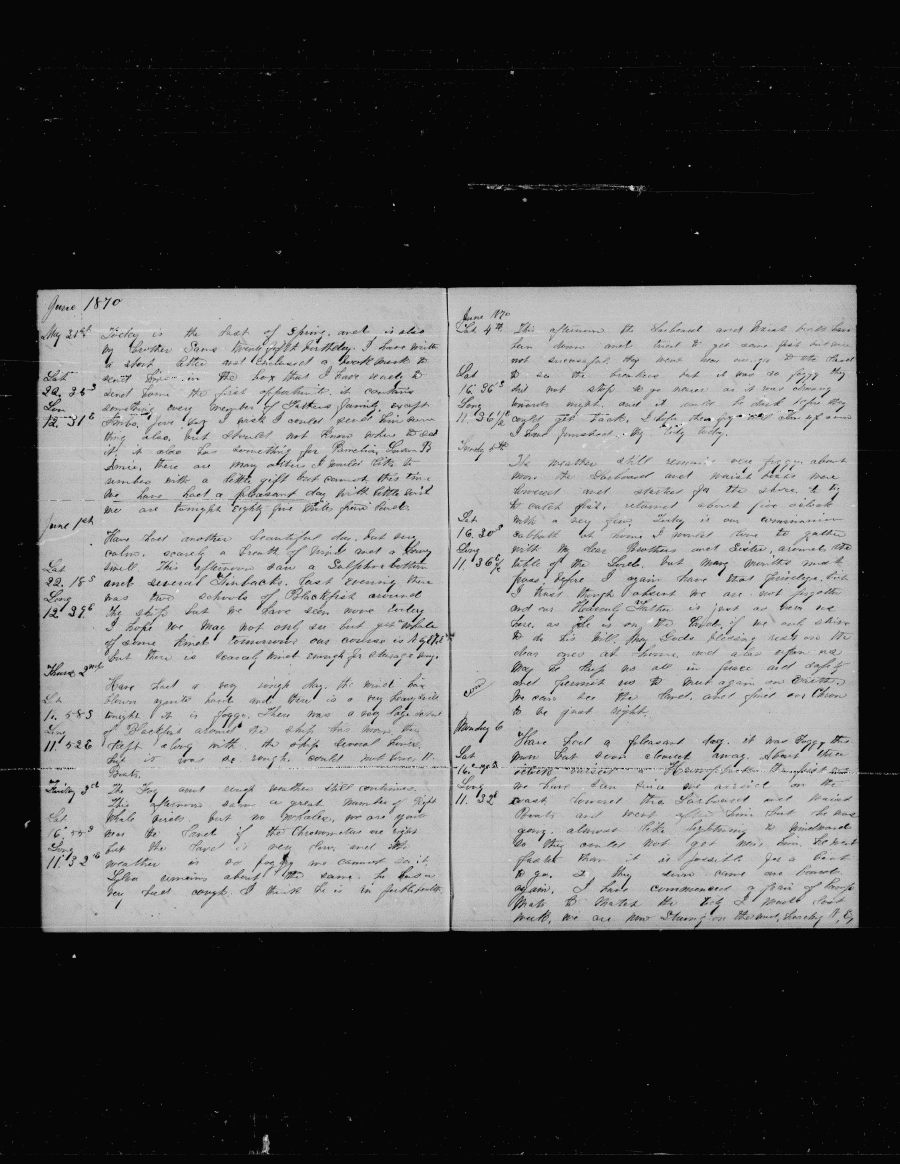 June 1870
May 31st Today is the last of Spring, and is also
my brother Sams twenty eight birthday. I have written
a short letter and enclosed a work mark to
Lat send him in the box that I have ready to
22. 35 S send home the first opportunity. it contains
Lon something every member of Fathers family except
12. 31 E I wish I could send him some
thing also, but should not know where to send
it. it also has something for Susan B
there are many others I would like to
remember with a little gift but cannot this time
We have had a pleasant day with little wind
we are tonight eighty five miles from land.
June 1st
Have had another beautiful day, but very
calm. scarcely a breath of wind and a heavy
Lat swell. This afternoon saw a Sulphur bottom
22. 18 S and several Finbacks. Last evening there
Long was two schools of Blackfish around
12. 38 E the ship but we have seen none today
I hope we may not only see but get whale
of some kind tomorrow our course is
but there is scarcely wind enough for steerage way.
Thurs 2nd
Have had a very rough day, the wind has
Lat blown quite hard and there is a very heavy swell
58 S tonight it is foggy. There was a very large school
Long of Blackfish around the ship this morn, they
11. 52 E kept along with the ship several hours
but it was so rough could not lower the
Boats.
Friday 3rd The Fog and rough weather still continues.
This afternoon saw a great number of Right
Lat Whale birds. but no Whales, we are quite
16. S near the land if the Chronometers are right
Long but the land is very low, and the
11. 32 E weather is so foggy we cannot see it,
remains about the same. he has a
very bad cough. I think he is in
June 1870
Sat 4th This afternoon the Larboard and Waist boats have
been down and tried to get some fish but were
not successful. they went near enough to the land
Lat to see the breakers but it was so foggy they
16. 36 S did not stop to go nearer as it was coming
Long towards night and it would be dark before they
11. 36 E could get back, I hope the fog will
I have finished my tidy today.
Sunday 5th
The weather still remains very foggy about
noon the Larboard and waist boats were
lowered and started for the shore, to try
to catch fish, returned about five oclock
Lat with a very few. Today is our communion
16. 30 S Sabbath at home I would love to gather
Long with my dear Brothers and Sisters around the
11. 36 E table of the Lord. but many months must
pass, before I again have that privilege. but
I trust though absent we are not forgotten
and our Heavenly Father is just as near us
here, as He is on the land, if we only strive
to do his will, May Gods blessing rest on the
dear ones at home, and also upon us
may he keep us all in peace and safety
and permit us to meet again on Earth.
We can see the land, and find our Chron
to be just right.
Monday 6
Have had a pleasant day. it was foggy this
Lat morn but soon cleared away. About three
16. S oclock raised a Humpback the first one
Long we have seen since we arrived on the
11. 32 coast, lowered the Larboard and Waist
Boats and went after him but he was
going almost like lightning to windward
so they could not get near him. he went
faster than it is possible for a boat
to go. so they soon came on board
again. I have commenced a pair of lamp
Mats to match the tidy I made last
week. we are now